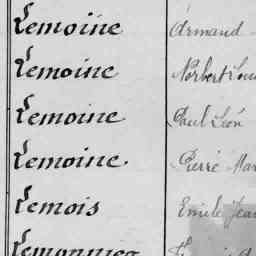 Lemoine Armand
Lemoine Norbert Lou
Lemoine Paul Léon
Lemoine. Pierre Mar
Lemois Emile Jea
Lemonnier